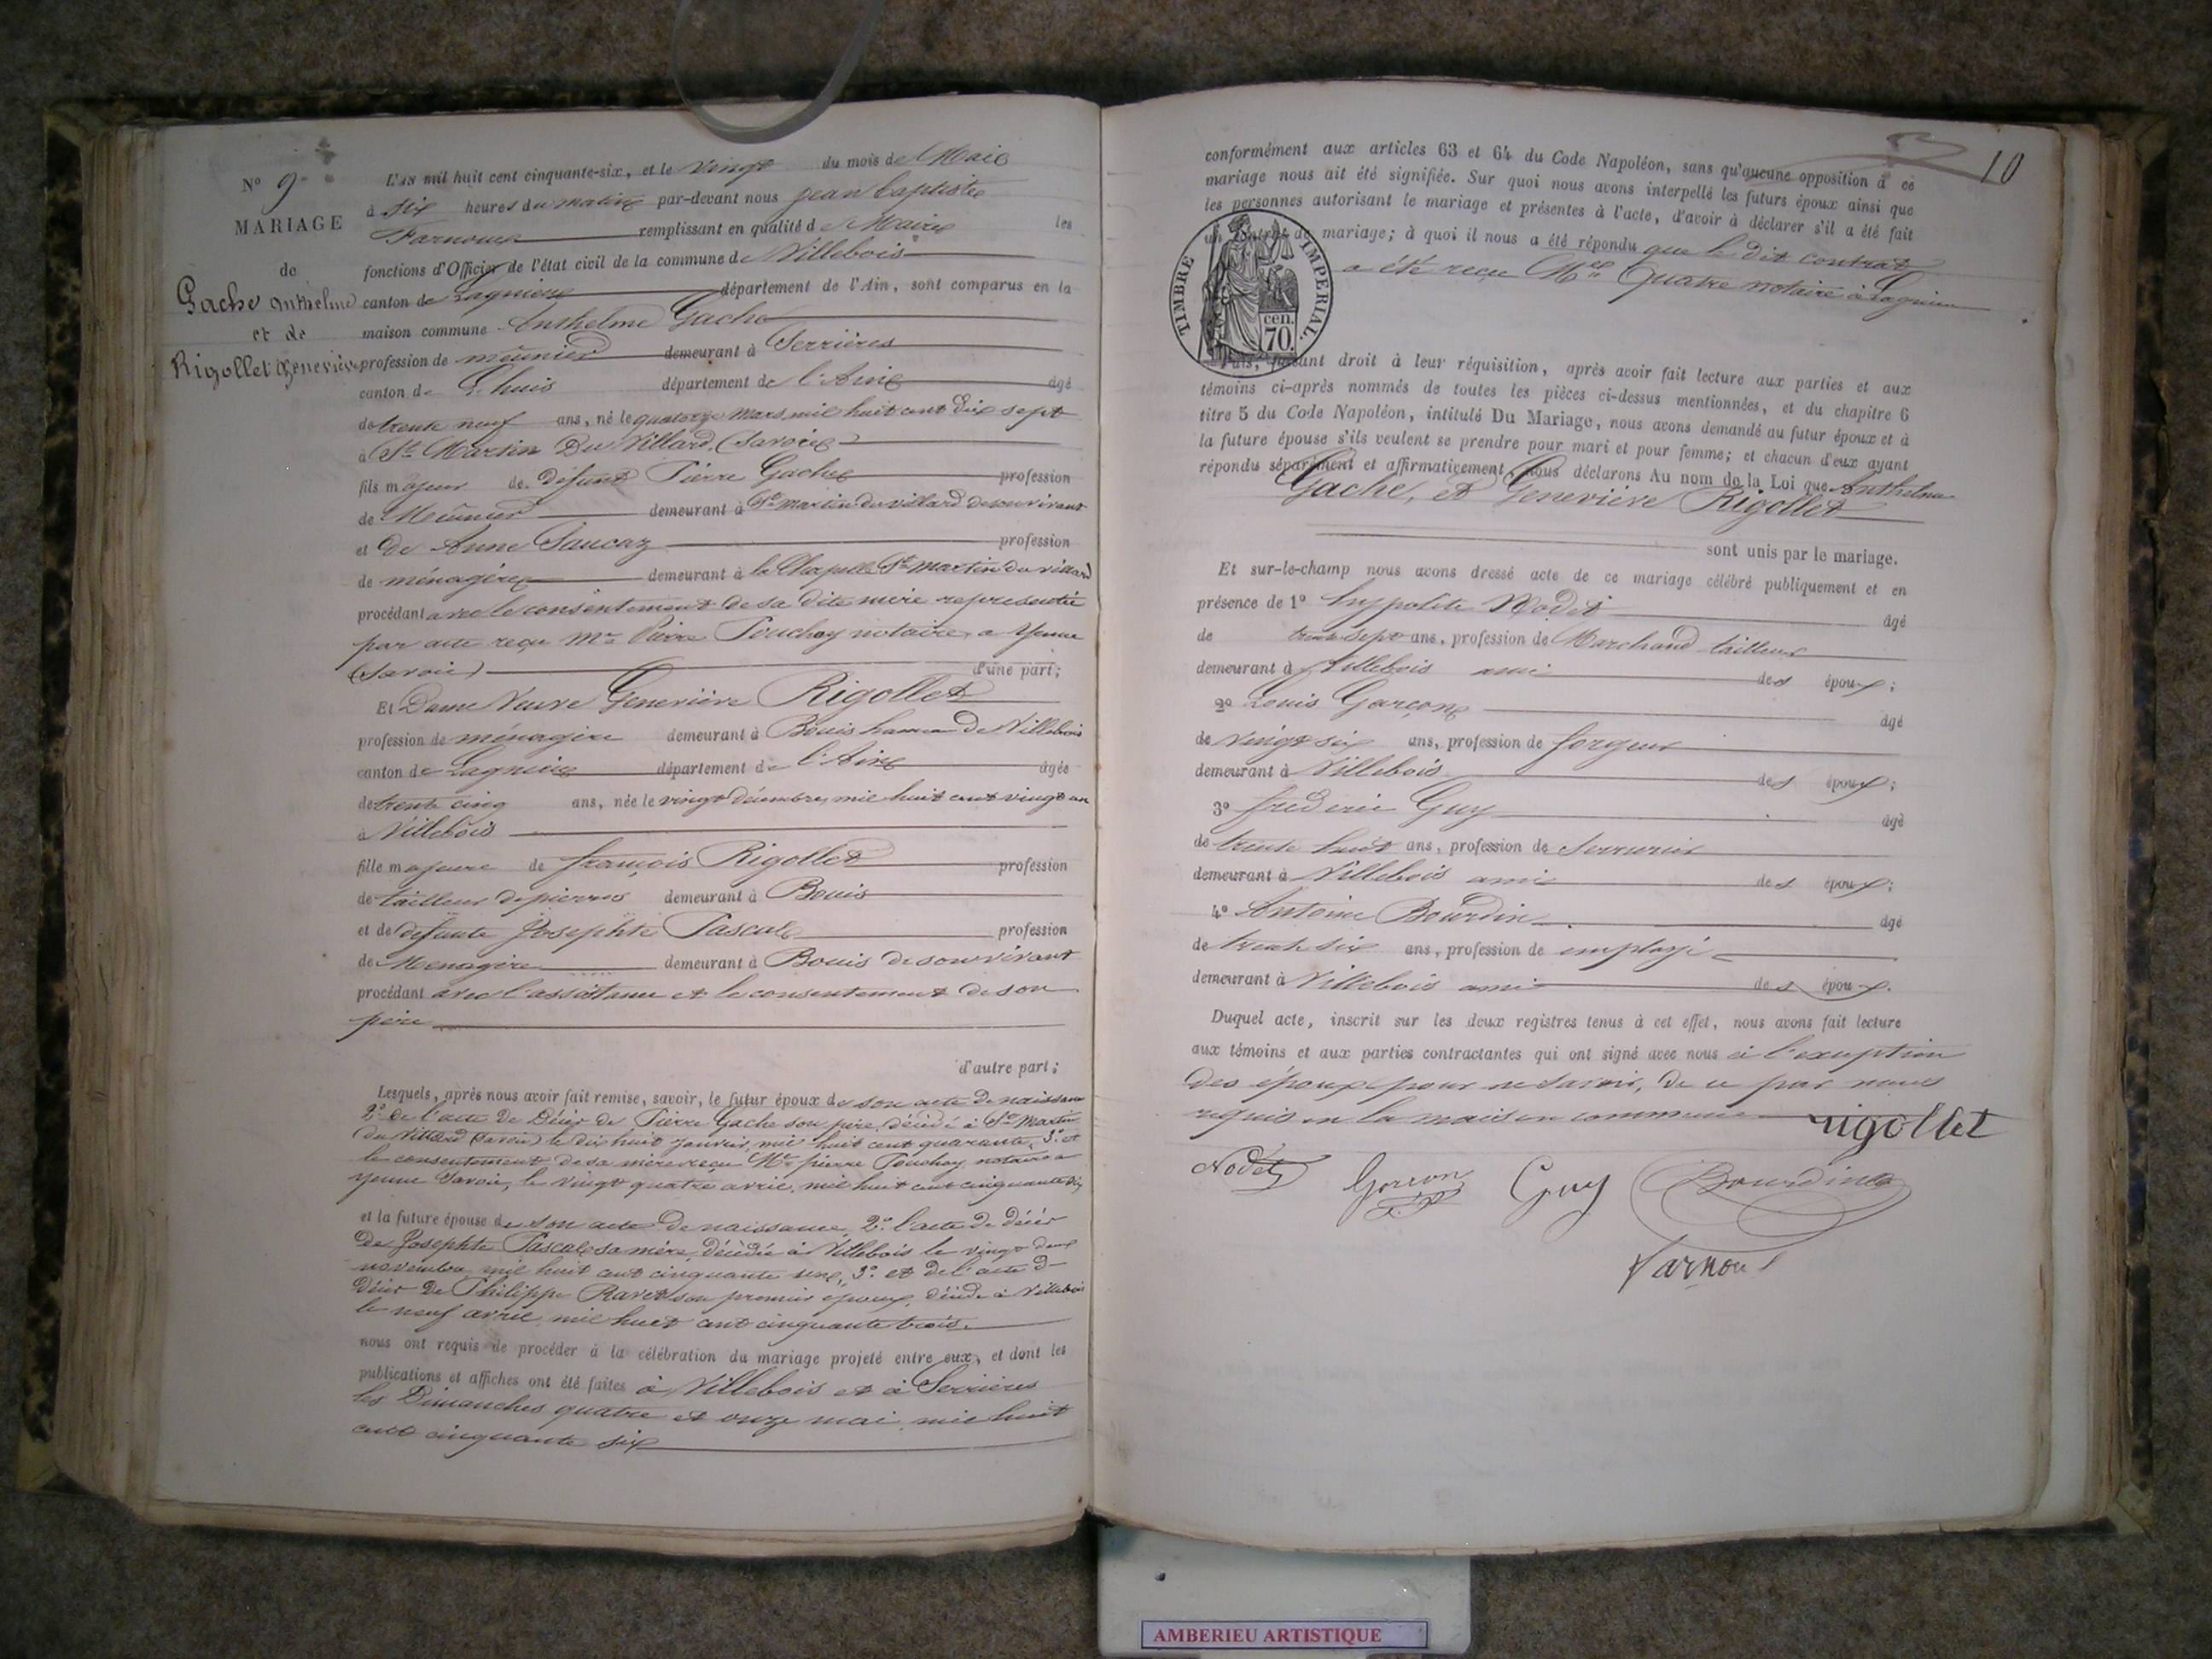 N° 9
MARIAGE
de
Gache Anthelme
et de
Rigollet Geneviève
L'AN mil huit cent cinquante-six, et le vingt du mois de Mai
à six heures du matin par-devant nous jean baptiste
Varnoux remplissant en qualité de Maire les
fonctions d'Officier de l'état civil de la commune de Villebois
canton de Lagnieu département de l'Ain, sont comparus en la
maison commune Anthelme Gache
profession de meûnier demeurant à Serrières
canton de L'huis département de l'Ain âgé
de trente neuf ans, né le quatorze mars mil huit cent dix sept
à St Martin Du Villard (Savoie)
fils majeur de défunt Pierre Gache profession
de Meûnier demeurant à St Martin du villard de son vivant
et de Anne Saucaz profession
de ménagère demeurant à la Chapelle St Martin du villard
procédant avec le consentement de sa dite mère representée
par acte reçu Me Pierre Touchoy notaire a Yenne
(Savoie) d'une part;
Et Dame Veuve Geneviève Rigollet
profession de ménagère demeurant à Bouis hameau de Villebois
canton de Lagnieu département de l'Ain âgée
de trente cinq ans, née le vingt décembre mil huit cent vingt un
à Villebois
fille majeure de françois Rigollet profession
de tailleur de pierres demeurant à Bouis
et de défunte Josephte Pascal profession
de Menagère demeurant à Bouis de son vivant
procédant avec l'assistance et le consentement de son
père
d'autre part;
Lesquels, après nous avoir fait remise, savoir, le futur époux de son acte de naissance
2° de l'acte de Décès de Pierre Gache son père, décédé à St Martin
du Villard (Savoie) le dix huit janvier mil huit cent quarante, 3° et
le consentement de sa mère reçu Me pierre Touchoy notaire a
Yenne Savoie, le vingt quatre avril, mil huit cent cinquante six
et la future épouse de son acte de naissance, 2° l'acte de décès
de Josephte Pascal sa mère, décédée à Villebois le vingt deux
novembre mil huit cent cinquante 3° et de l'acte de
décès de Philippe Ravet son premier époux, décédé à Villebois
le neuf avril mil huit cent cinquante trois.
nous ont requis de procéder à la célébration du mariage projeté entre eux, et dont les
publications et affiches ont été faites à Villebois et à Serrières
les Dimanches quatre et onze mai mil huit
cent cinquante six
10
conformément aux articles 63 et 64 du Code Napoléon, sans qu'aucune opposition à ce
mariage nous ait été signifiée. Sur quoi nous avons interpellé les futurs époux ainsi que
les personnes autorisant le mariage et présentes à l'acte, d'avoir à déclarer s'il a été fait
un contrat de mariage; à quoi il nous a été répondu que le dit contrat
a été reçu Me Quatre notaire à Lagnieu
TIMBRE IMPERIAL
70 cen.
Puis, faisant droit à leur réquisition, après avoir fait lecture aux parties et aux
témoins ci-après nommés de toutes les pièces ci-dessus mentionnées, et du chapitre 6
titre 5 du Code Napoléon, intitulé Du Mariage, nous avons demandé au futur époux et à
la future épouse s'ils veulent se prendre pour mari et pour femme; et chacun d'eux ayant
répondu séparément et affirmativement, nous déclarons Au nom de la Loi que Anthelme
Gache, et Geneviève Rigollet
sont unis par le mariage.
Et sur-le-champ nous avons dressé acte de ce mariage célébré publiquement et en
présence de 1° hyppolite Nodet âgé
de trente sept ans, profession de Marchand tailleur
demeurant à Villebois ami des époux;
2° Louis Garçon âgé
de vingt six ans, profession de forgeur
demeurant à Villebois des époux;
3° frederic Guy âgé
de trente huit ans, profession de Serrurier
demeurant à Villebois ami des époux;
4° Antoine Bourdin âgé
de trente six ans, profession de employé
demeurant à Villebois ami des époux.
Duquel acte, inscrit sur les deux registres tenus à cet effet, nous avons fait lecture
aux témoins et aux parties contractantes qui ont signé avec nous à l'exception
des époux pour ne savoir, de ce par nous
requis en la maison commune
rigollet
Nodet Garcon Guy Bourdin
Varnoux
AMBERIEU ARTISTIQUE